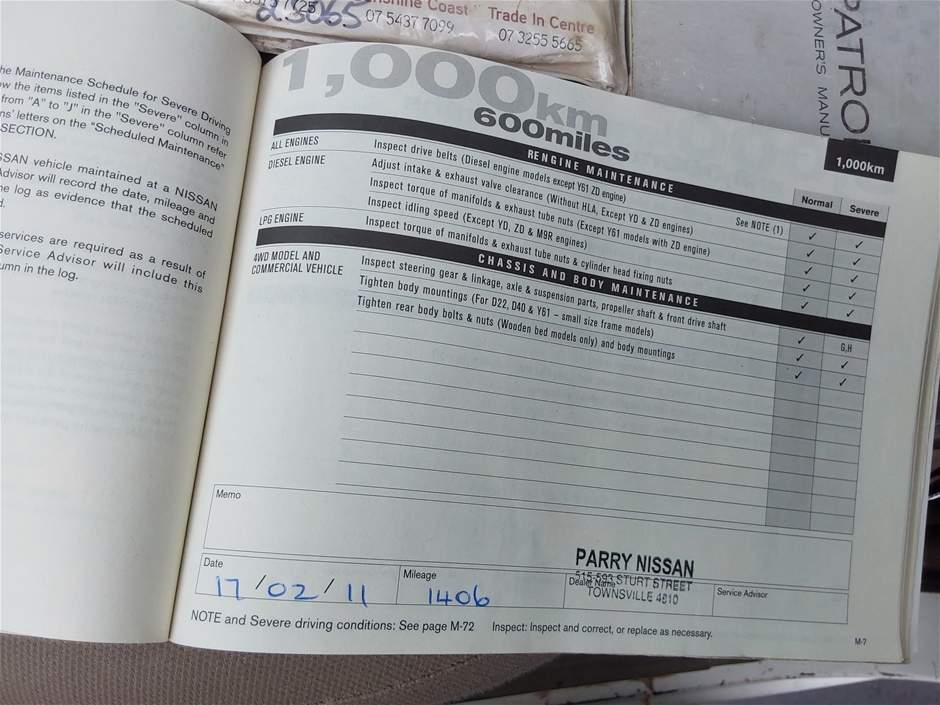 23065
nshine Coast Trade In Centre
07 5437 7099
07 3255 5665
PATROL
OWNER'S MANU
he Maintenance Schedule for Severe Driving
ow the items listed in the "Severe" column in
from "A" to "J" in the "Severe" column refer
ns' letters on the "Scheduled Maintenance"
SECTION.
SSAN vehicle maintained at a NISSAN
Advisor will record the date, mileage and
he log as evidence that the scheduled
d.
services are required as a result of
Service Advisor will include this
umn in the log.
1,000km
600miles
1,000km
RENGINE MAINTENANCE
Normal Severe
ALL ENGINES Inspect drive belts (Diesel engine models except Y61 ZD engine) See NOTE (1) ✓ ✓
DIESEL ENGINE Adjust intake & exhaust valve clearance (Without HLA, Except YD & ZD engines) ✓ ✓
Inspect torque of manifolds & exhaust tube nuts (Except Y61 models with ZD engine) ✓ ✓
Inspect idling speed (Except YD, ZD & M9R engines) ✓ ✓
LPG ENGINE Inspect torque of manifolds & exhaust tube nuts & cylinder head fixing nuts ✓ ✓
CHASSIS AND BODY MAINTENANCE
4WD MODEL AND Inspect steering gear & linkage, axle & suspension parts, propeller shaft & front drive shaft ✓ G,H
COMMERCIAL VEHICLE Tighten body mountings (For D22, D40 & Y61 – small size frame models) ✓ ✓
Tighten rear body bolts & nuts (Wooden bed models only) and body mountings ✓ ✓
Memo
Date 17/02/11
Mileage 1406
Dealer Name
PARRY NISSAN
515-593 STURT STREET
TOWNSVILLE 4810
Service Advisor
NOTE and Severe driving conditions: See page M-72 Inspect: Inspect and correct, or replace as necessary.
M-7